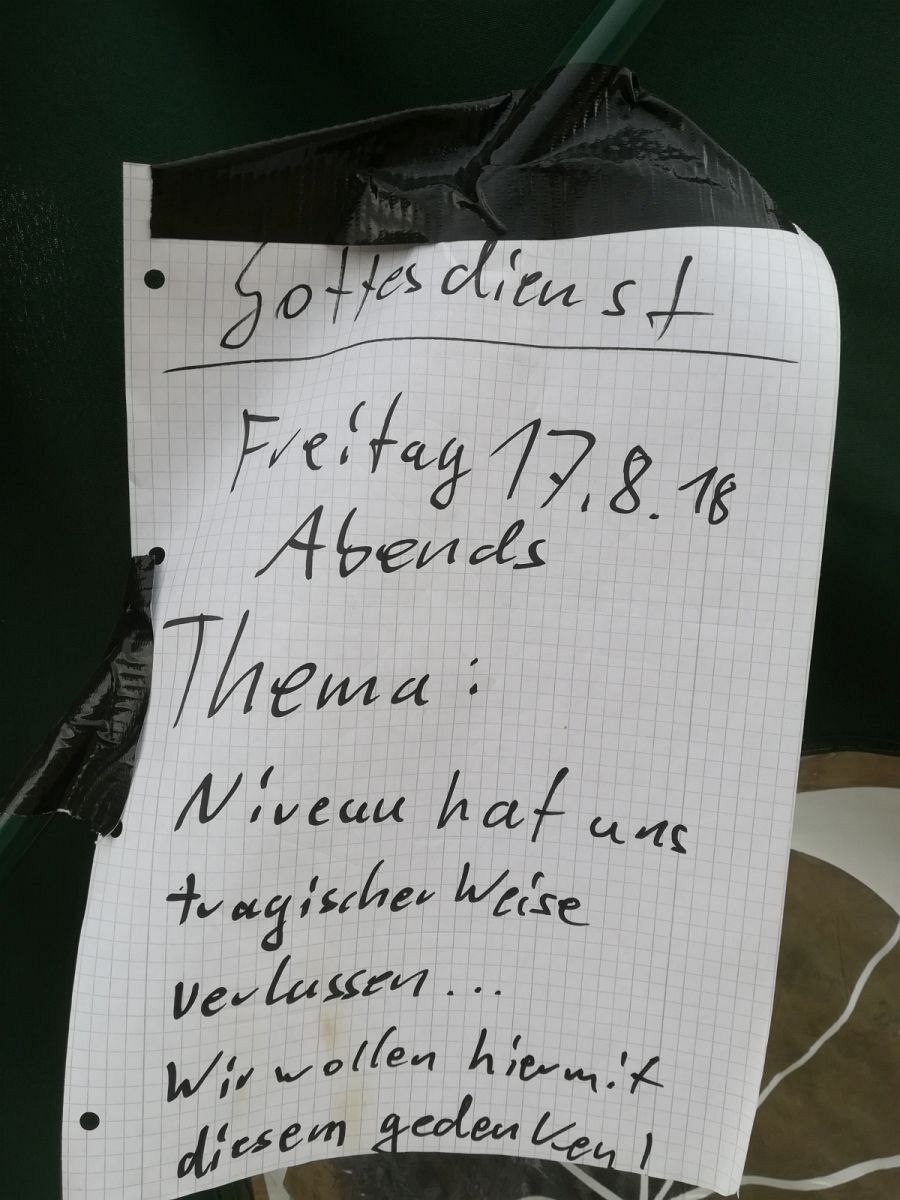 Gottesdienst
Freitag 17.8.18
Abends
Thema:
Niveau hat uns
tragischer Weise
verlassen...
Wir wollen hiermit
diesem gedenken!